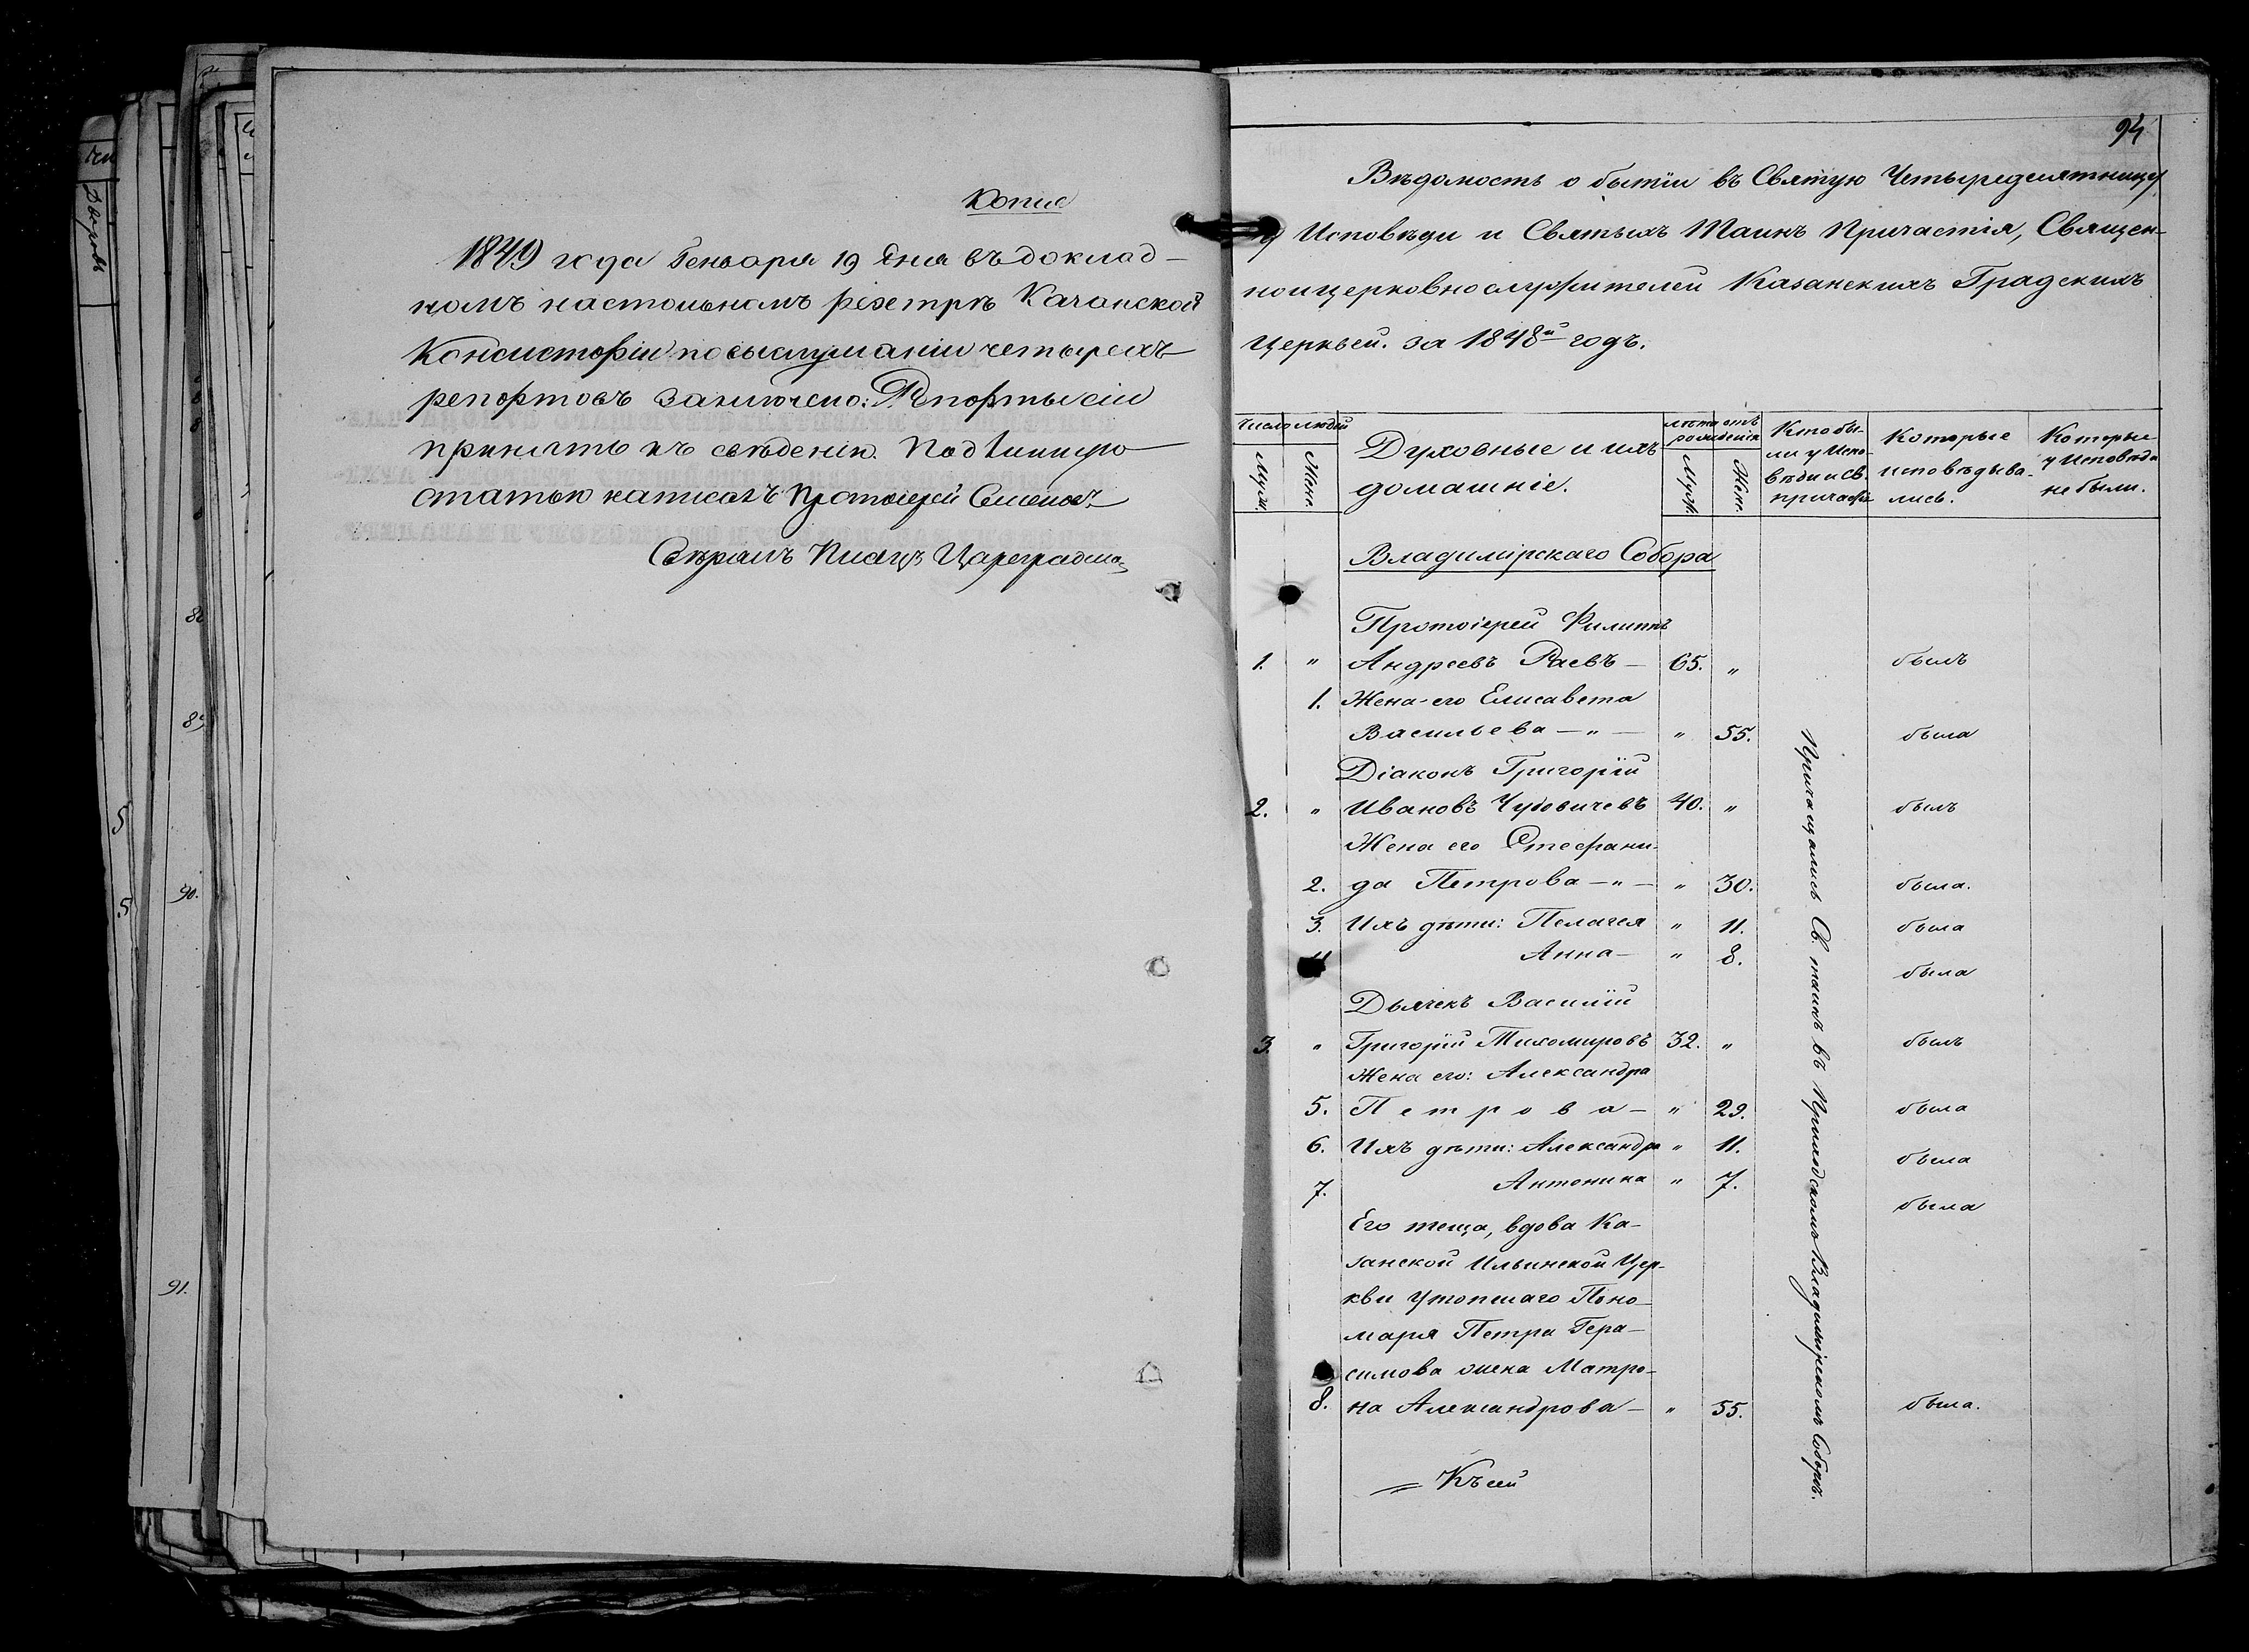 Копие
1849 года Генваря 19 дня въ доклад-
номъ настольномъ
Консисторіи по выслушаніи четырехъ
репортовъ заключено: Репорты сіи
принять къ свѣденію. Подлинную
статью написалъ Протоіерей
Свѣрялъ Писецъ
94
Вѣдомость о бытіи въ Святую Четыредесятницу
у Исповѣди и Святыхъ Таинъ Причастія, Священ-
ноцерковнослужителей Казанскихъ Градскихъ
Церквей. за 1848й годъ.
Число людей
Муж.
Жен.
Духовные и ихъ
домашніе.
лѣта отъ
рожденія
Муж.
Жен.
Кто бы-
ли у Испо-
вѣди и Св.
причастія
Которые
исповѣдыва-
лись.
Которые
у Исповѣди
не были.
Владимірскаго Собора
Протоіерей Филиппъ
1. " Андреевъ Раевъ — 65. " былъ
1. Жена его Елисавета
Васильева — " — " 55. была
Діаконъ Григорій
2. " Ивановъ Чудовичевъ 40. " былъ
Жена его Стефани-
2. да Петрова — " — " 30. была.
3. Ихъ дѣти: Пелагея " 11. была
Анна — " 8. была
Дьячекъ Василій
3. " Григорій Тихомировъ 32. " былъ
Жена его: Александра
5. Петрова — " 29. была
6. Ихъ дѣти: Александра " 11. была
7. Антонина " 7. была
Его теща, вдова Ка-
занской Ильинской Цер-
кви утопшаго Поно-
маря Петра Гера-
симова жена Матро-
8. на Александрова — " 55. была.
Пріобщались Св. таинъ въ Приходскомъ Владимірскомъ Соборѣ.
= Къ сей
5
5
90.
91.